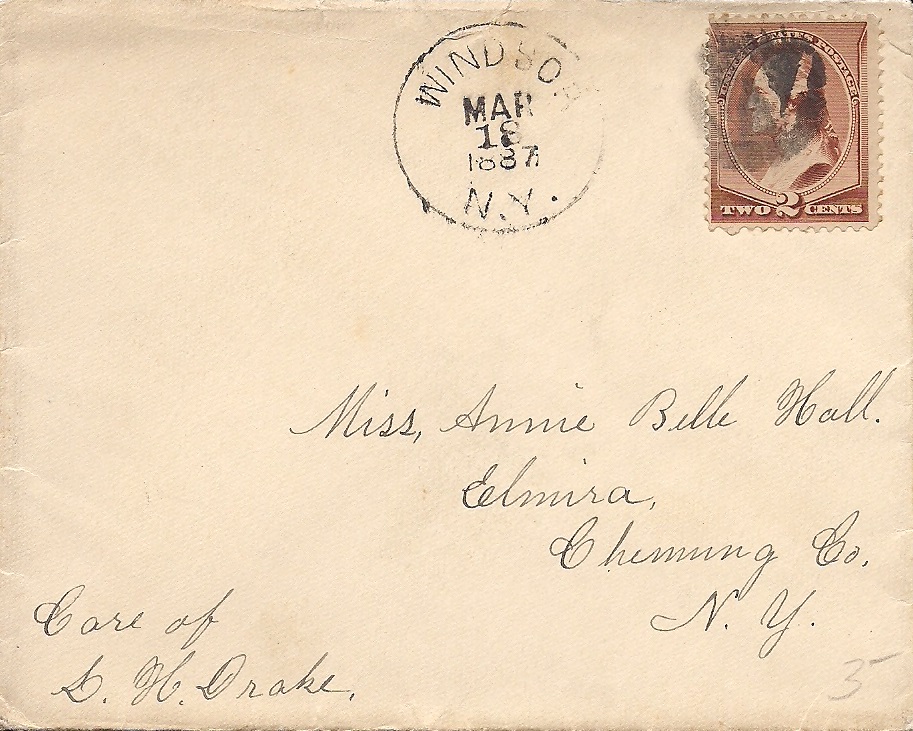 WINDSOR
MAR
18
1887
N.Y.
UNITED STATES POSTAGE
TWO 2 CENTS
Miss, Annie Belle Hall.
Elmira,
Chemung Co,
N. Y.
Care of
D. H. Drake,
35